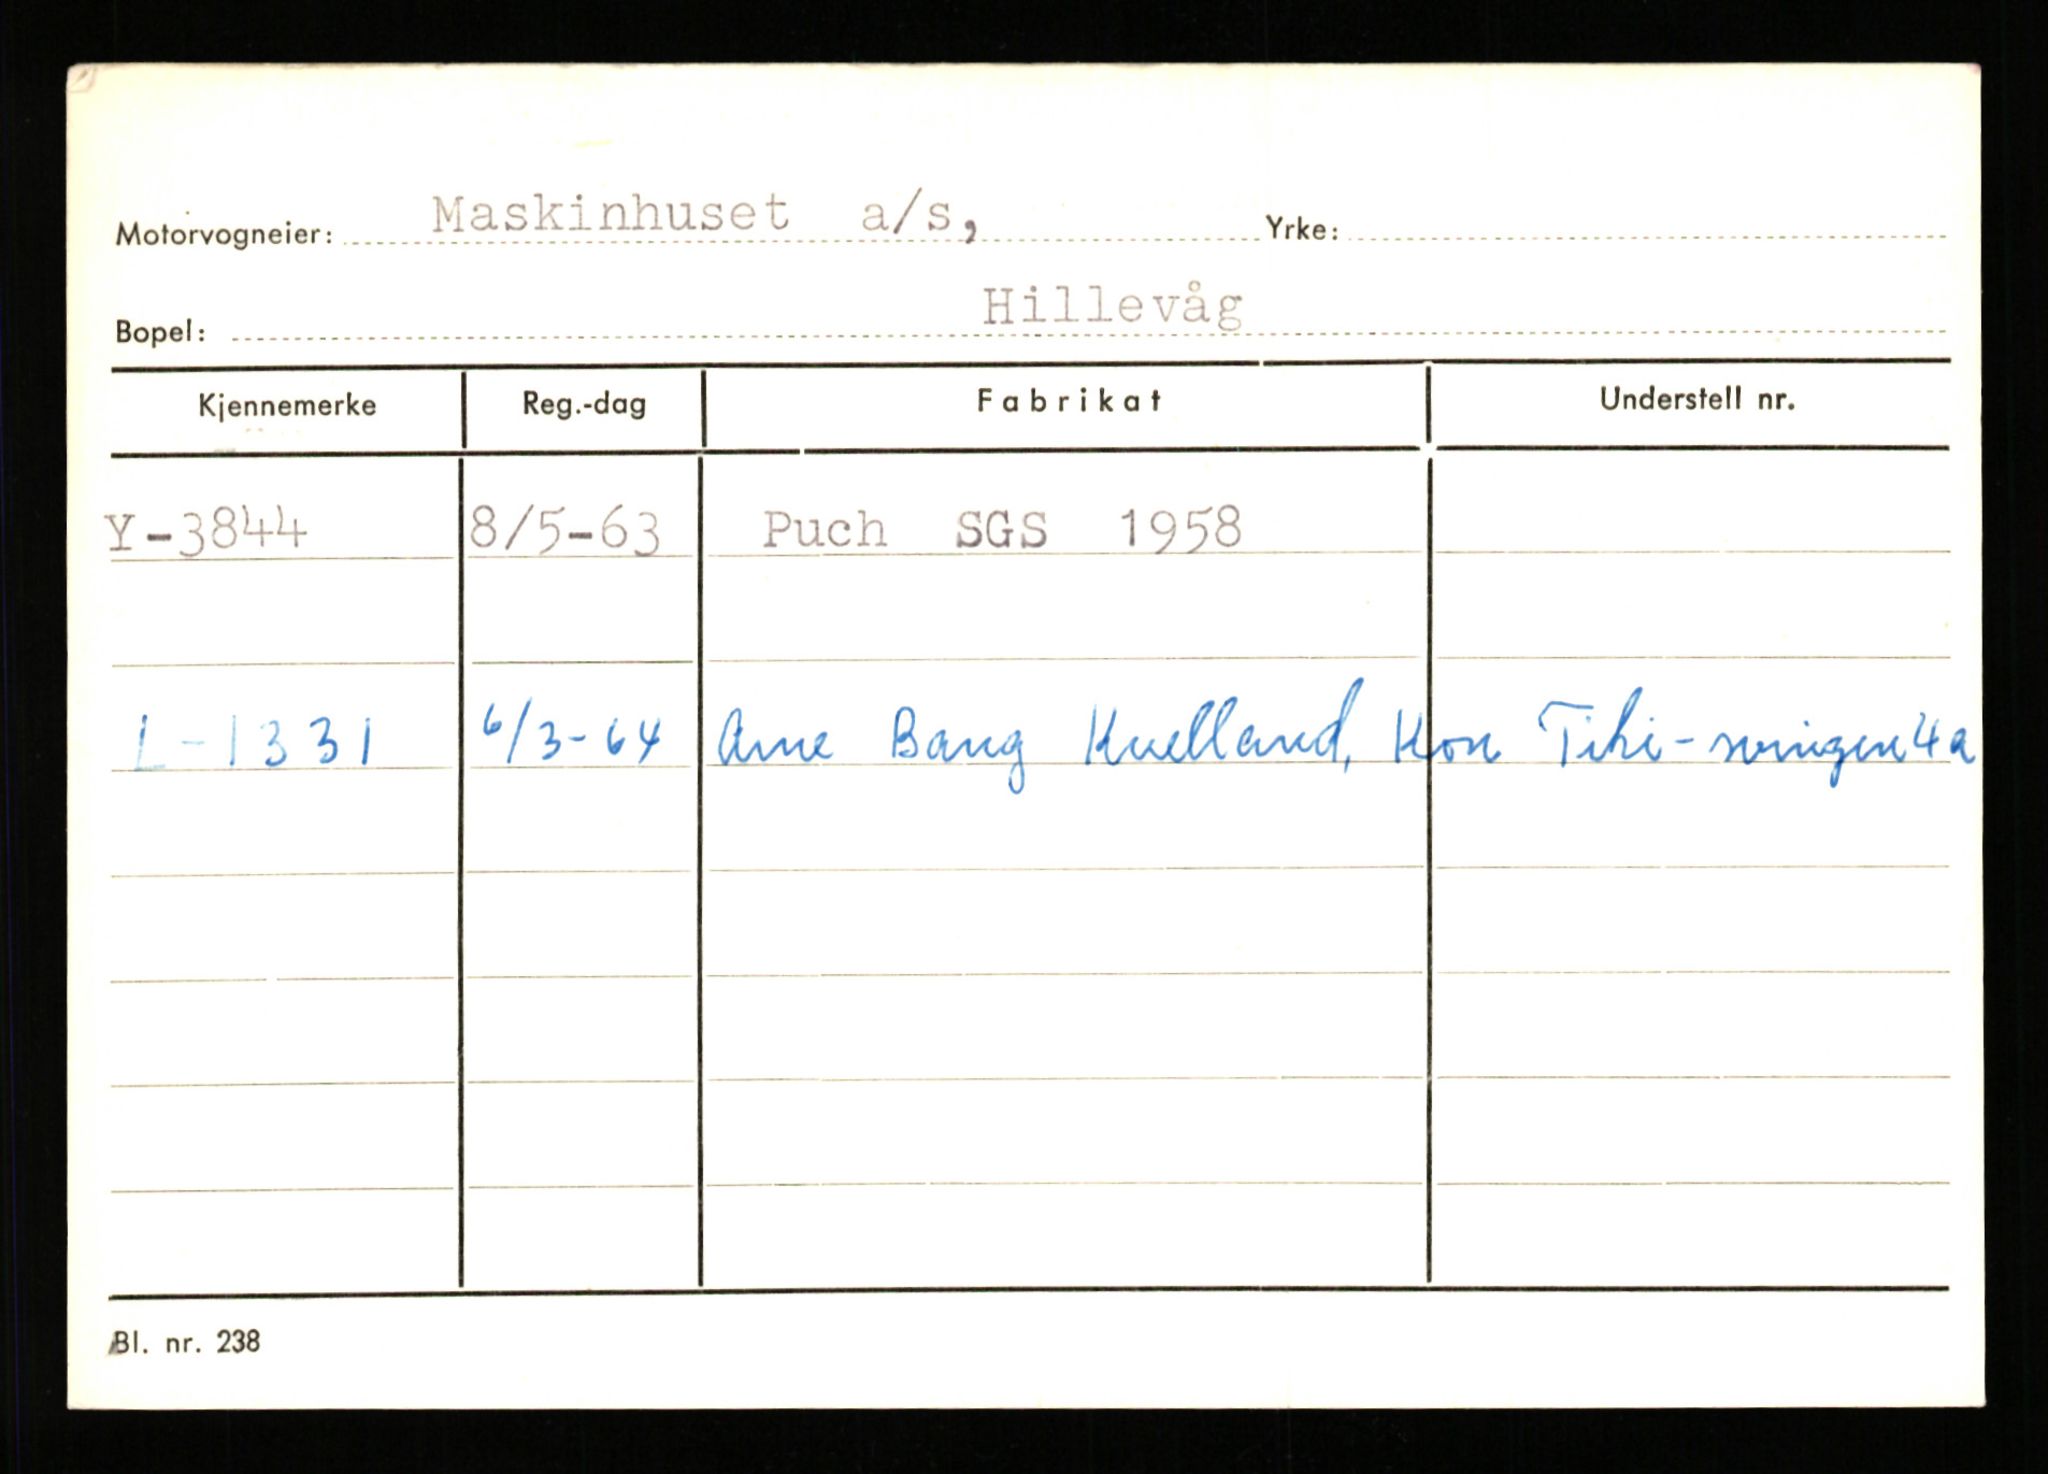 Motorvogneier: Maskinhuset a/s, Yrke:
Bopel: Hillevåg
Kjennemerke Reg.-dag Fabrikat Understell nr.
Y-3844 8/5-63 Puch SGS 1958
L-1331 6/3-64 Arne Bang Kuelland, Kon Tiki-svingen 4a
Bl. nr. 238